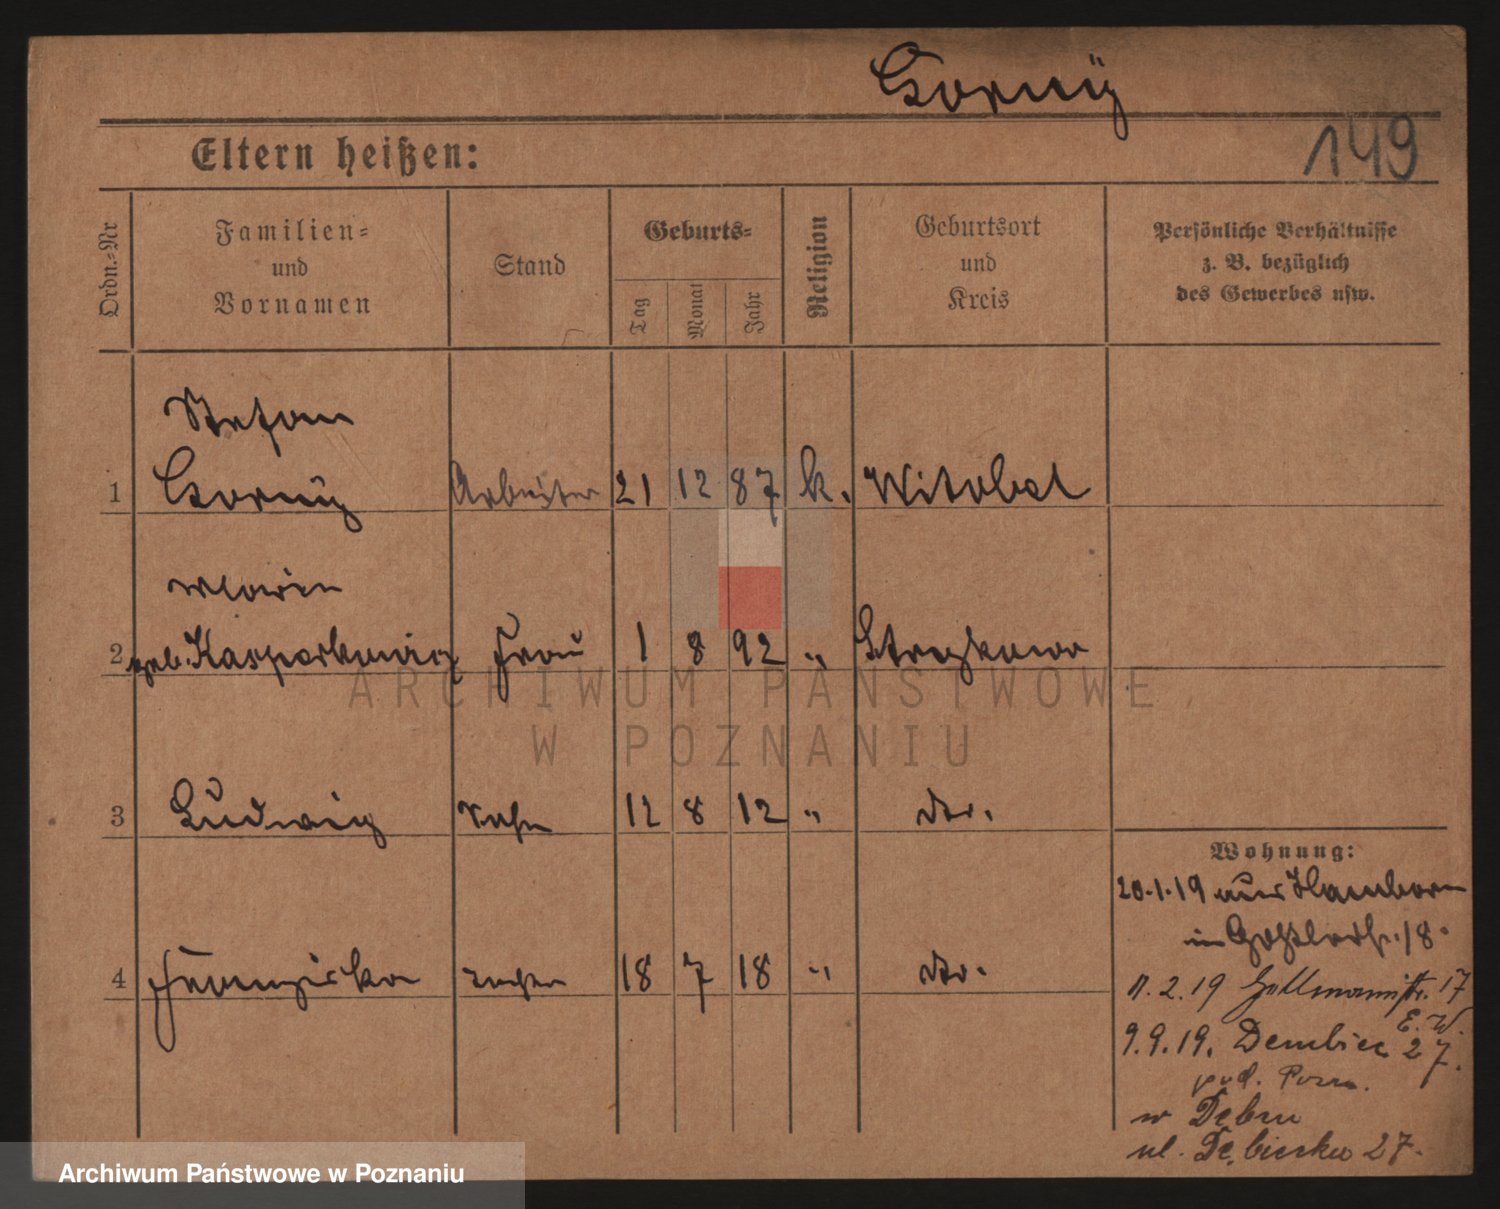 Gorny
149
Eltern heißen:
Ordn.-Nr
Familien- und Vornamen
Stand
Geburts-
Tag
Monat
Jahr
Religion
Geburtsort und Kreis
Persönliche Verhältnisse
z. B. bezüglich
des Gewerbes usw.
Stefan
1 Gorny Arbeiter 21 12 87 k. Witobel
Marie
2 geb. Frau 1 8 92 "
3 Ludwig 12 8 12 " do.
4 Franziska 18 7 18 " do.
Wohnung:
20.1.19 aus Hamborn
in 18.
11.2.19 17
E. W.
9.9.19. Dembiec 27.
pod. Pozn.
w Dębcu
ul. Dębiecka 27.
ARCHIWUM PAŃSTWOWE
W POZNANIU
Archiwum Państwowe w Poznaniu